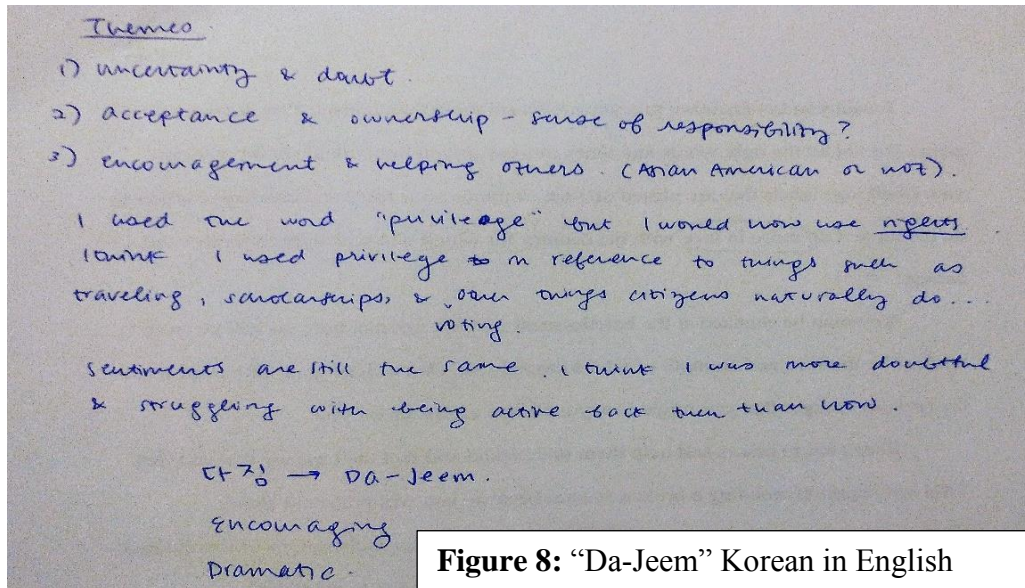 Themes
1) uncertainty & doubt.
2) acceptance & ownership - sense of responsibility?
3) encouragement & helping others. (Asian American or not).
I used the word "privileage" but I would now use rights
I think I used privilege in reference to things such as
traveling, scholarships, & other things citizens naturally do...
voting.
sentiments are still the same. I think I was more doubtful
& struggling with being active back then than now.
다짐 → Da-Jeem.
Encouraging
Dramatic.
Figure 8: “Da-Jeem” Korean in English